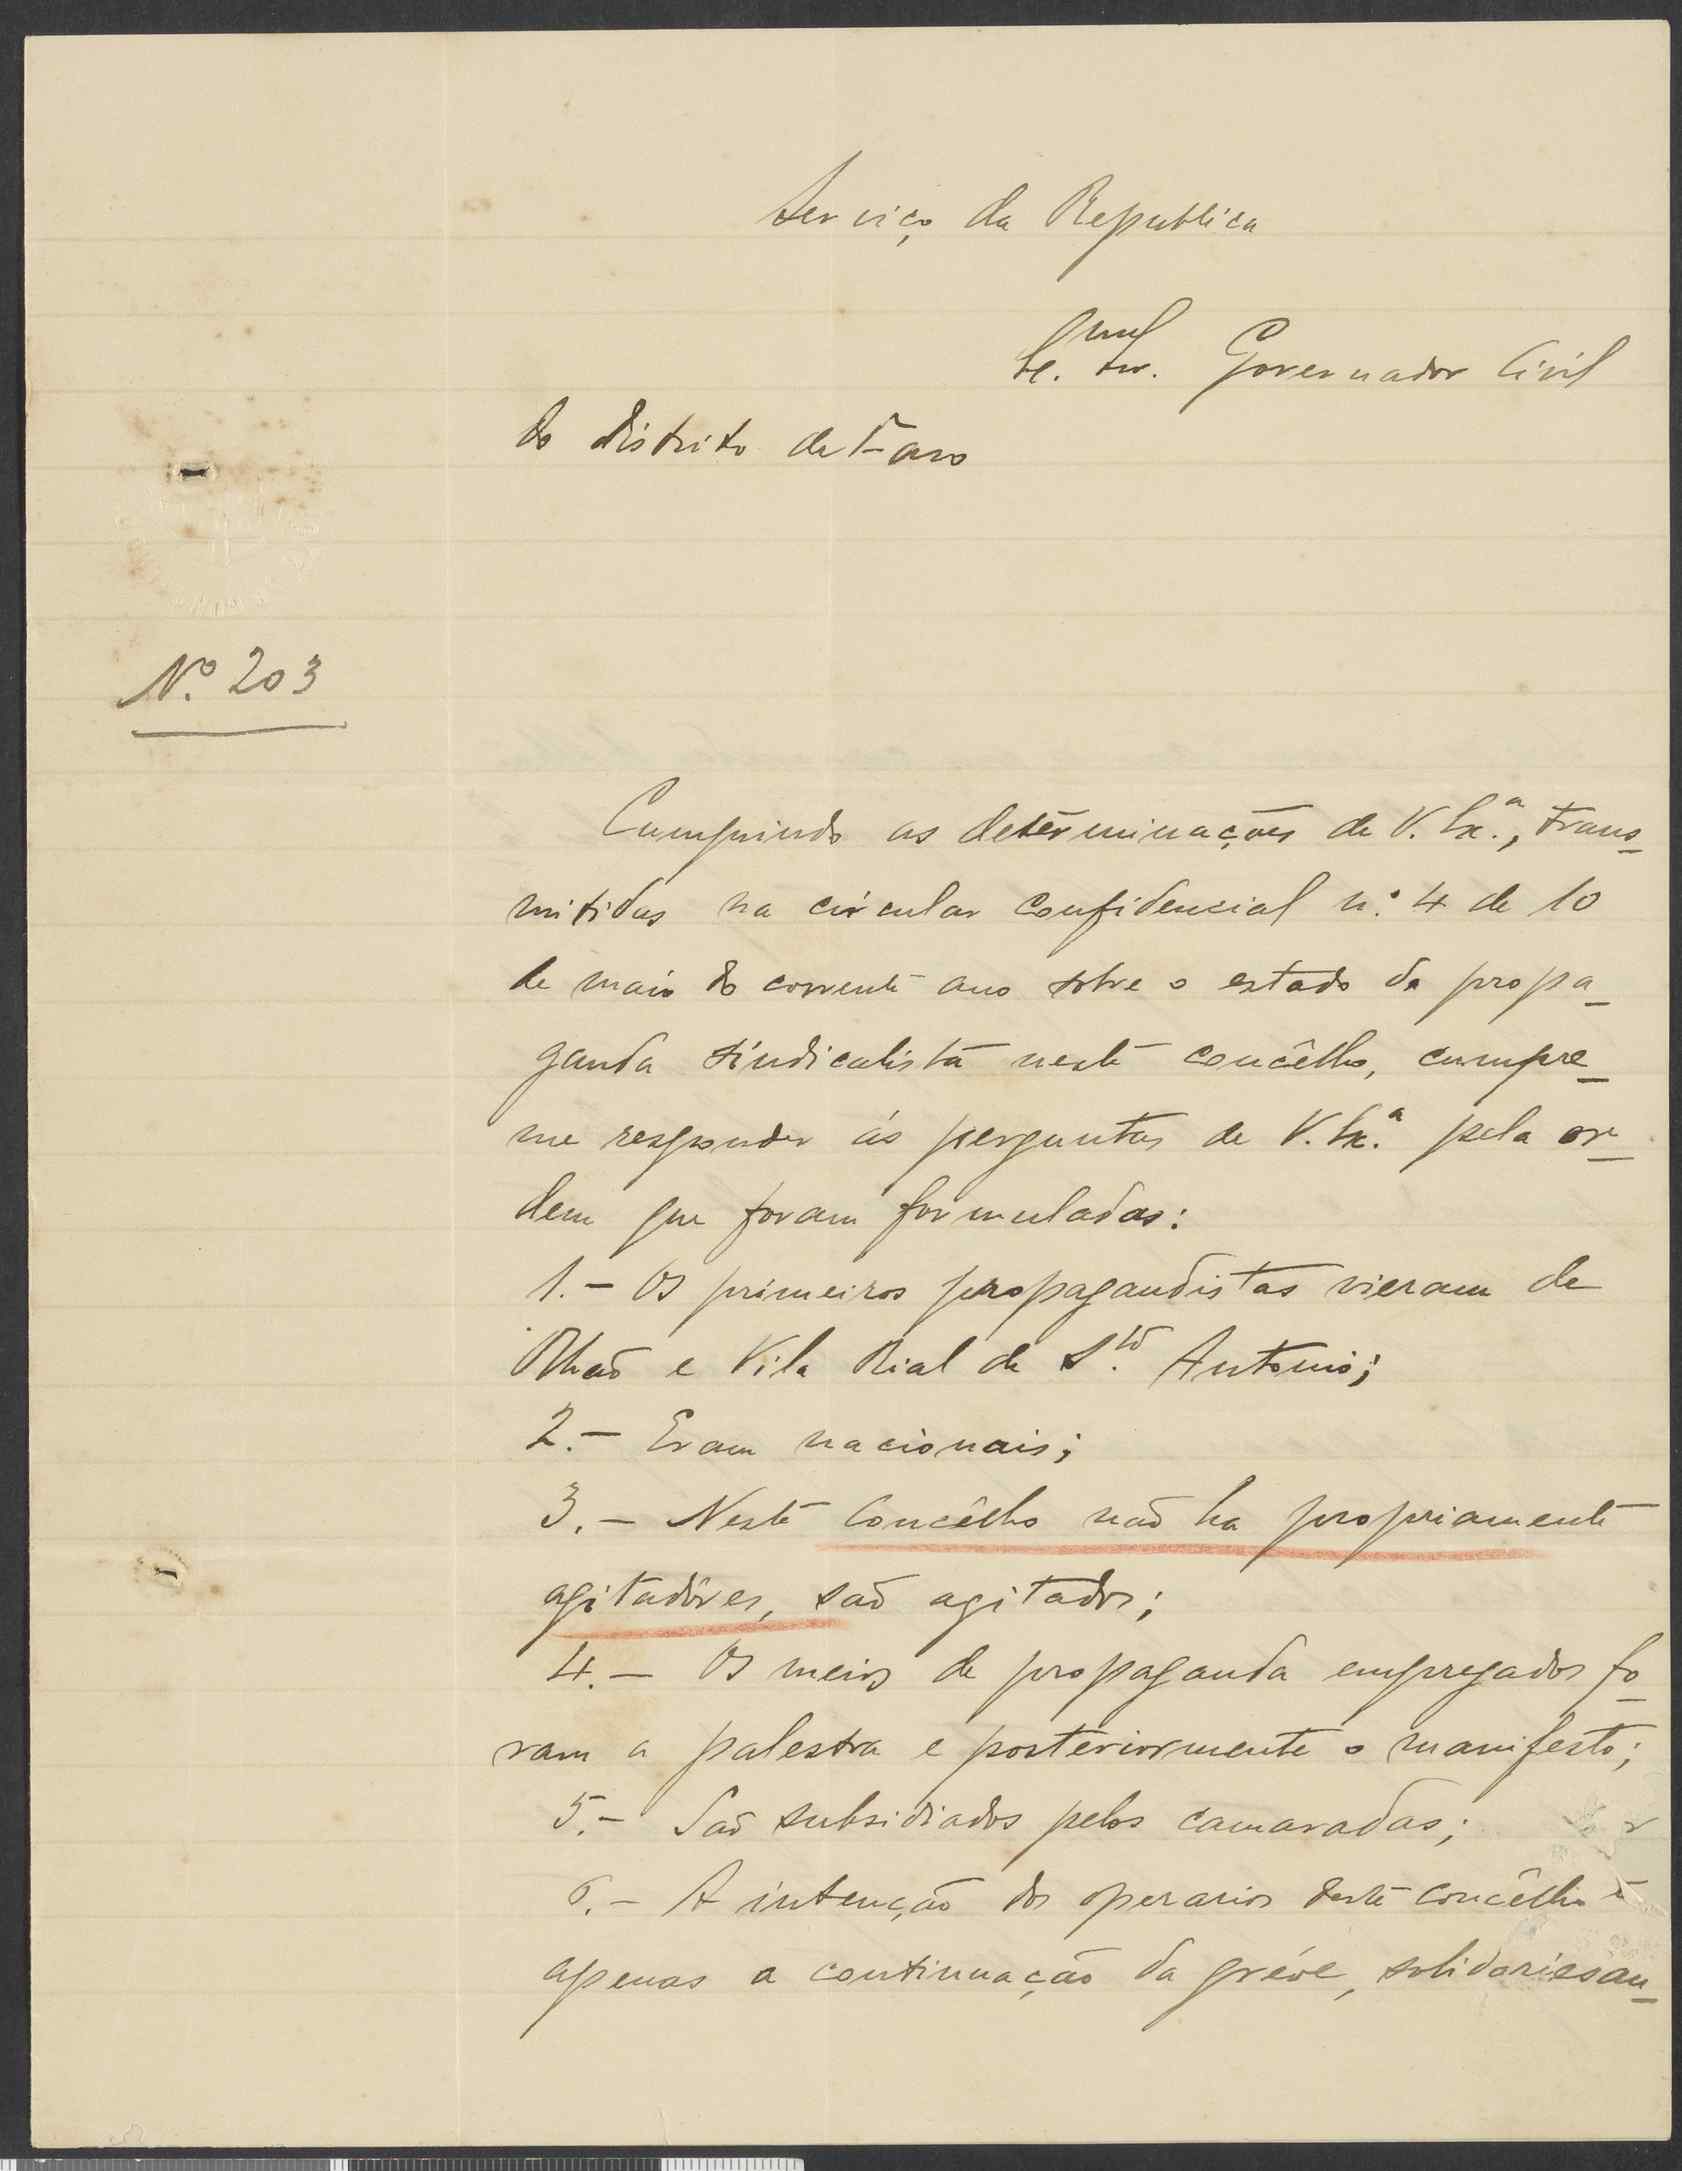 Serviço da Republica
Ex.mo Snr. Governador Civil
do distrito de Faro
N.º 203
Cumprindo as detérminações de V. Ex.ª, trans-
mitidas na circular confidencial n.º 4 de 10
de maio do corrente ano sobre o estado da propa-
ganda sindicalista neste concêlho, cumpre-
me responder ás perguntas de V. Ex.ª pela or-
dem que foram formuladas:
1.- Os primeiros propagandistas vieram de
Olhão e Vila Rial de S.to Antonio;
2.- Eram nacionais;
3.- Neste Concêlho não ha propriamente
agitadôres, são agitados;
4.- Os meios de propaganda empregados fo-
ram a palestra e posteriormente o manifesto;
5.- São subsidiados pelos camaradas;
6.- A intenção dos operarios deste concêlho é
apenas a continuação da gréve, solidariesan-